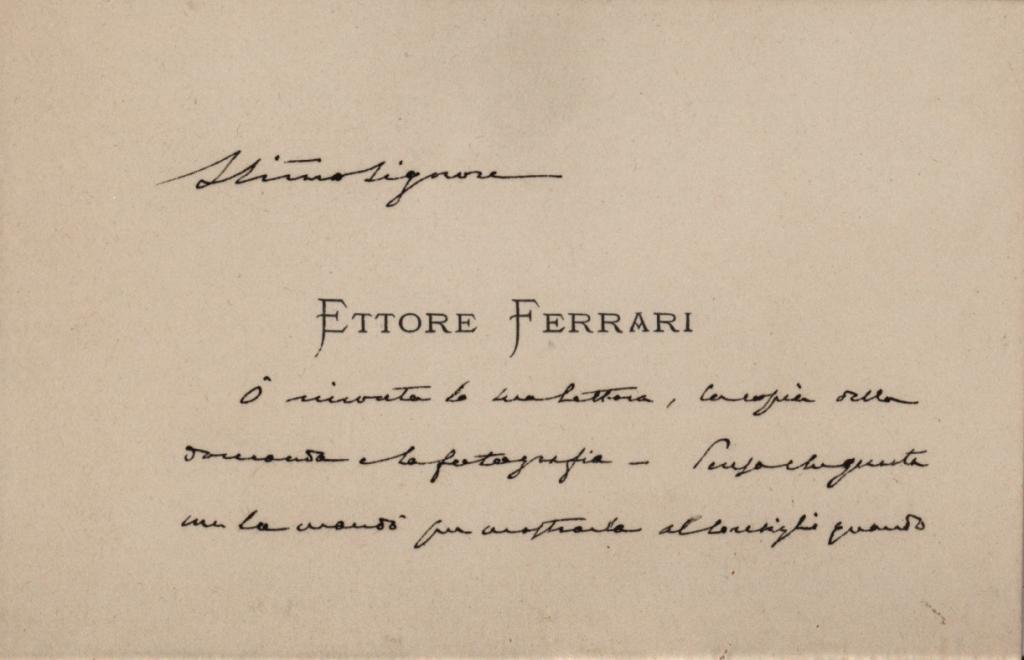 Stimo Signore
ETTORE FERRARI
Ô ricevuta la sua lettera, la copia della
domanda e la fotografia – Penso che questa
me la mandò per mostrarla al Consiglio quando